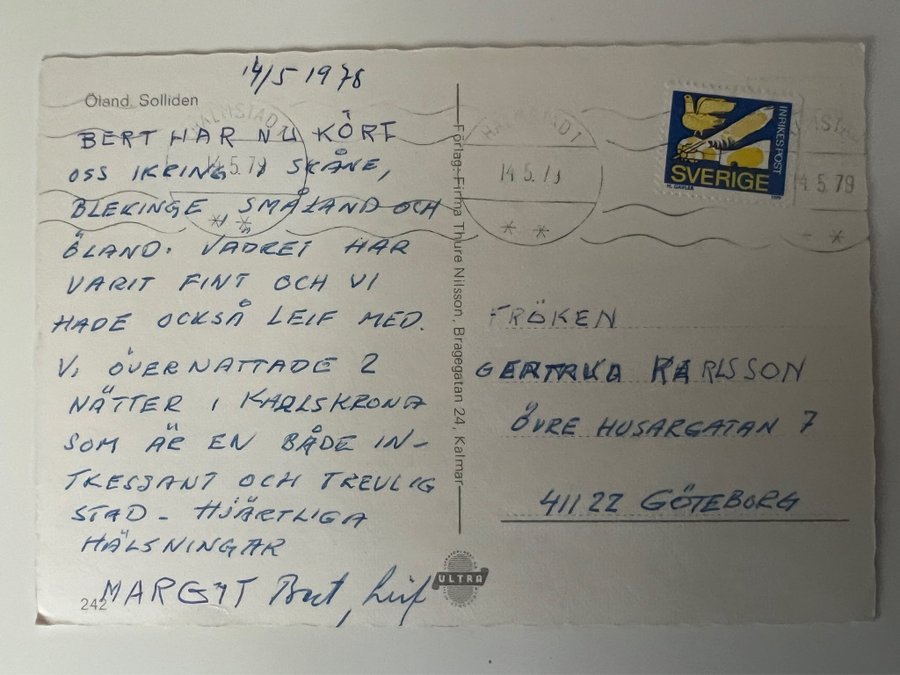 14/5 1978
Öland. Solliden
BERT HAR NU KÖRT
OSS IKRING I SKÅNE,
BLEKINGE SMÅLAND OCH
ÖLAND. VÄDRET HAR
VARIT FINT OCH VI
HADE OCKSÅ LEIF MED.
VI ÖVERNATTADE 2
NÄTTER I KARLSKRONA
SOM ÄR EN BÅDE IN-
TRESSANT OCH TREVLIG
STAD - HJÄRTLIGA
HÄLSNINGAR
MARGIT Bert, Leif
242
Förlag: Firma Thure Nilsson, Bragegatan 24, Kalmar
ULTRA
HALMSTAD 1
14.5.79
14.5.79
14.5.79
INRIKES POST
SVERIGE
FRÖKEN
GERTRUD KARLSSON
ÖVRE HUSARGATAN 7
411 22 GÖTEBORG